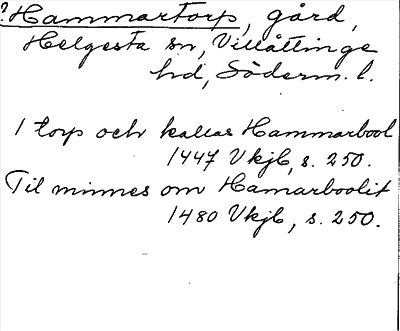 ? Hammartorp, gård,
Helgesta sn, Villåttinge
hd, Söderm. l.
1 torp och kallas Hammarbool
1447 Vkjb, s. 250.
Til minnes om Hamarboolit
1480 Vkjb, s. 250.